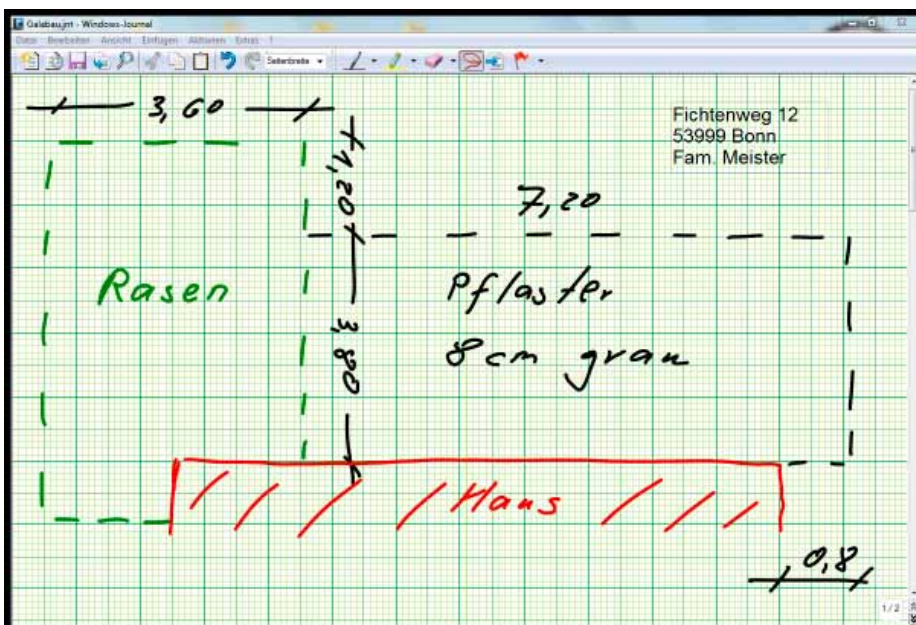 Galabau.jnt - Windows-Journal
Datei Bearbeiten Ansicht Einfügen Aktionen Extras ?
Seitenbreite
3,60
Fichtenweg 12
53999 Bonn
Fam. Meister
1,20
7,20
Rasen
Pflaster
3,80
8cm grau
Haus
0,8
1/2